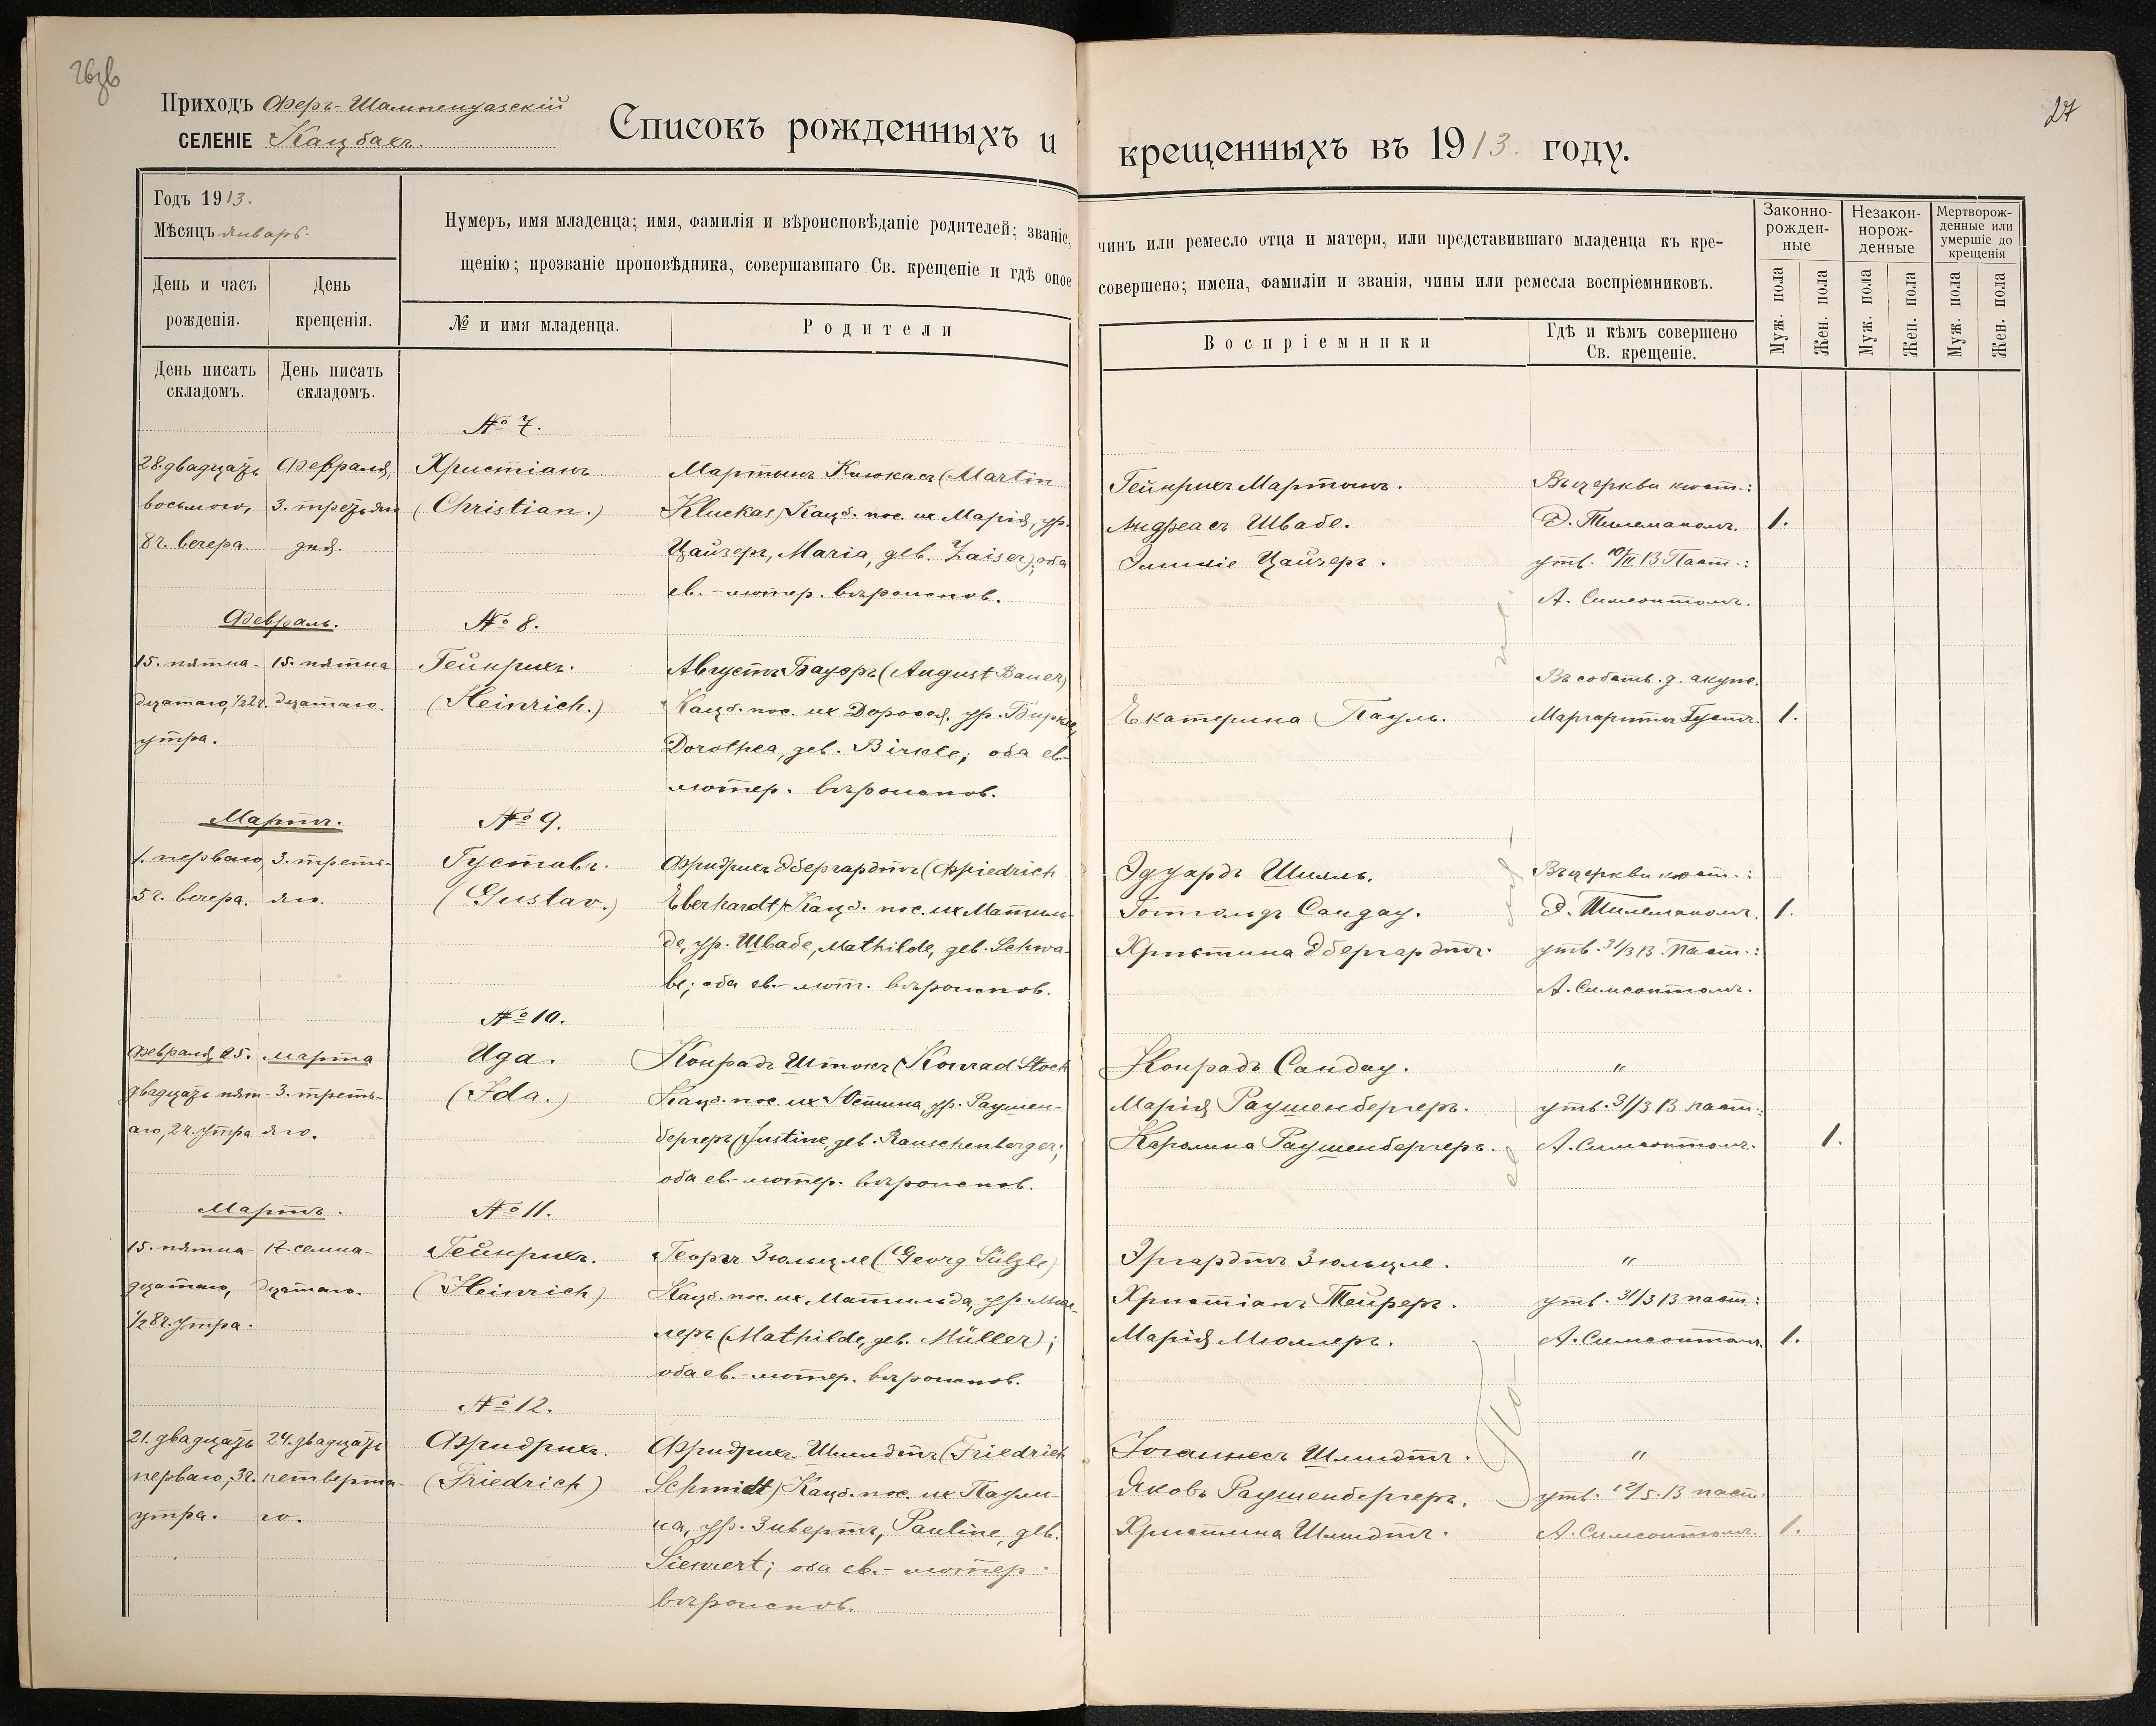 27
Приходъ Феръ-Шампенуазскій
СЕЛЕНІЕ Кацбахъ.
Списокъ рожденныхъ и крещенныхъ въ 1913. году.
Годъ 1913.
Мѣсяцъ январь.
Нумеръ, имя младенца; имя, фамилія и вѣроисповѣданіе родителей; званіе, чинъ или ремесло отца и матери, или представившаго младенца къ кре-
щенію; прозваніе проповѣдника, совершавшаго Св. крещеніе и гдѣ оное совершено; имена, фамиліи и званія, чины или ремесла воспріемниковъ.
Законно-
рожден-
ные
Незакон-
норож-
денные
Мертворож-
денные или
умершіе до
крещенія
День и часъ
рожденія.
День
крещенія.
№ и имя младенца.
Родители
Воспріемники
Гдѣ и кѣмъ совершено
Св. крещеніе.
Муж. пола
Жен. пола
Муж. пола
Жен. пола
Муж. пола
Жен. пола
День писать
складомъ.
День писать
складомъ.
№ 7.
28. двадцать
восьмого,
8 ч. вечера.
Февраля,
3. третьяго
дня.
Христіанъ
(Christian.)
Мартинъ Клюкасъ (Martin
Kluckas) Кацб. пос. их Марія, ур.
Цайзеръ, Maria, geb. Zaiser); оба
ев.-лютер. вѣроиспов.
Гейнрихъ Мартинъ.
Андреасъ Швабе.
Эмиліе Цайзеръ.
Въ церкви кюст.:
Э. Тилеманомъ.
утв. 10/II 13 Паст.:
А. Симсонтомъ.
1.
Февраль.
№ 8.
15. пятна-
дцатаго, 1/2 2 ч.
утра.
15. пятна
дцатаго.
Гейнрихъ.
(Heinrich.)
Августъ Бауэръ (August Bauer)
Кацб. пос. их Доровея, ур. Биркле,
Dorothea, geb. Birkle; оба ев.-
лютер. вѣроиспов.
Екатерина Пауль.
Въ собств. д. акуш.
Маргарита Густъ.
1.
Мартъ.
№ 9.
1. перваго,
5 ч. вечера.
3. треть-
яго.
Густавъ.
(Gustav.)
Фридрихъ Эбергардтъ (Фriedrich
Eberhardt) Кацб. пос. их Матиль-
де, ур. Швабе, Mathilde, geb. Schwa-
be; оба ев.-лют. вѣроиспов.
Эдуардъ Шилль.
Готтольдъ Сандау.
Христина Эбергардтъ.
Въ церкви кюст.:
Э. Тилеманомъ.
утв. 31/3 13. Паст.:
А. Симсонтомъ.
1.
№ 10.
Февраля 25.
двадцать пят-
аго, 2 ч. утра
марта
3. треть-
яго.
Ида.
(Ida.)
Конрадъ Штокъ (Konrad Stock
Кацб. пос. их Юстина, ур. Раушен-
бергеръ (Justine, geb. Rauschenberger;
оба ев.-лютер. вѣроиспов.
Конрадъ Сандау.
Марія Раушенбергеръ.
Каролина Раушенбергеръ.
"
утв. 31/3 13 паст.:
А. Симсонтомъ.
1.
Мартъ.
№ 11.
15. пятна-
дцатаго,
1/2 8 ч. утра.
17. семна-
дцатаго.
Гейнрихъ.
(Heinrich)
Георгъ Зюльцле (Georg Sülzle)
Кацб. пос. их Матильда, ур. Мюл-
леръ (Mathilde, geb. Müller);
оба ев.-лютер. вѣроиспов.
Эргардтъ Зюльцле.
Христіанъ Тейреръ.
Марія Мюллеръ.
"
утв. 31/3 13 паст.:
А. Симсонтомъ.
1.
№ 12.
21. двадцать
перваго, 3 ч.
утра.
24. двадцать
четверта-
го.
Фридрихъ.
(Friedrich)
Фридрихъ Шмидтъ (Friedrich
Schmidt) Кацб. пос. их Паули-
на, ур. Зивертъ, Pauline, geb.
Siewert; оба ев.-лютер.
вѣроиспов.
Іоганнесъ Шмидтъ.
Яковъ Раушенбергеръ.
Христина Шмидтъ.
"
утв. 12/5. 13 паст.
А. Симсонтомъ.
1.